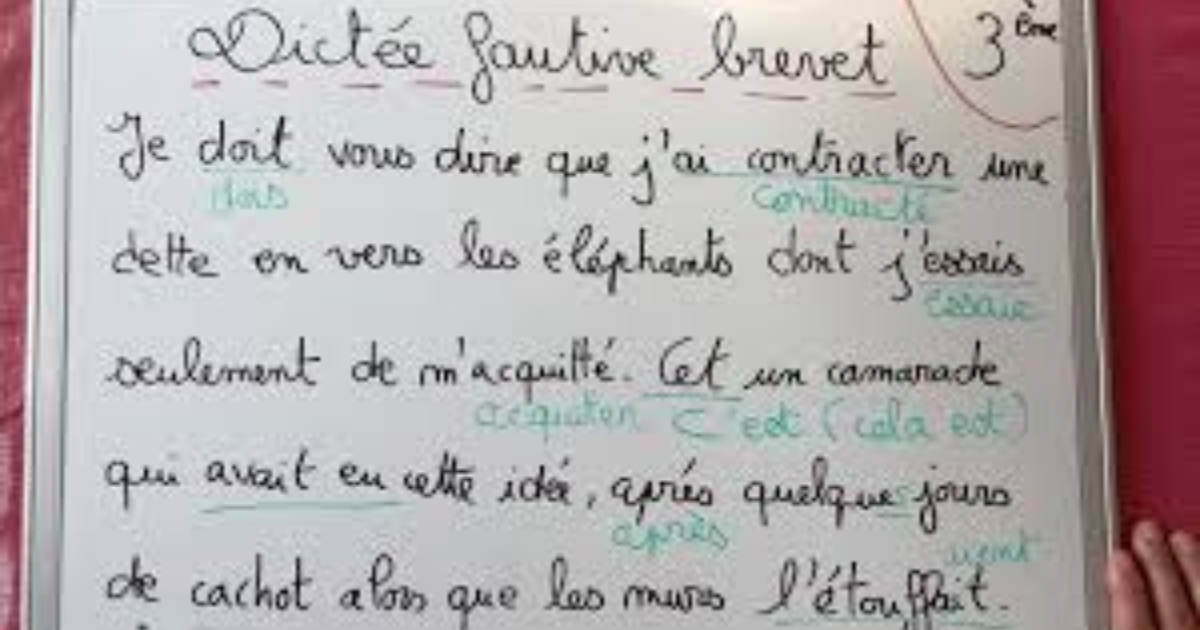 Dictée fautive brevet 3ème
Je doit vous dire que j'ai contracter une
dois contracté
dette en vers les éléphants dont j'essais
essaie
seulement de m'acquitté. Cet un camarade
acquitter C'est (cela est)
qui avait eu cette idée, aprés quelques jours
après
uent
de cachot alors que les murs l'étouffait.